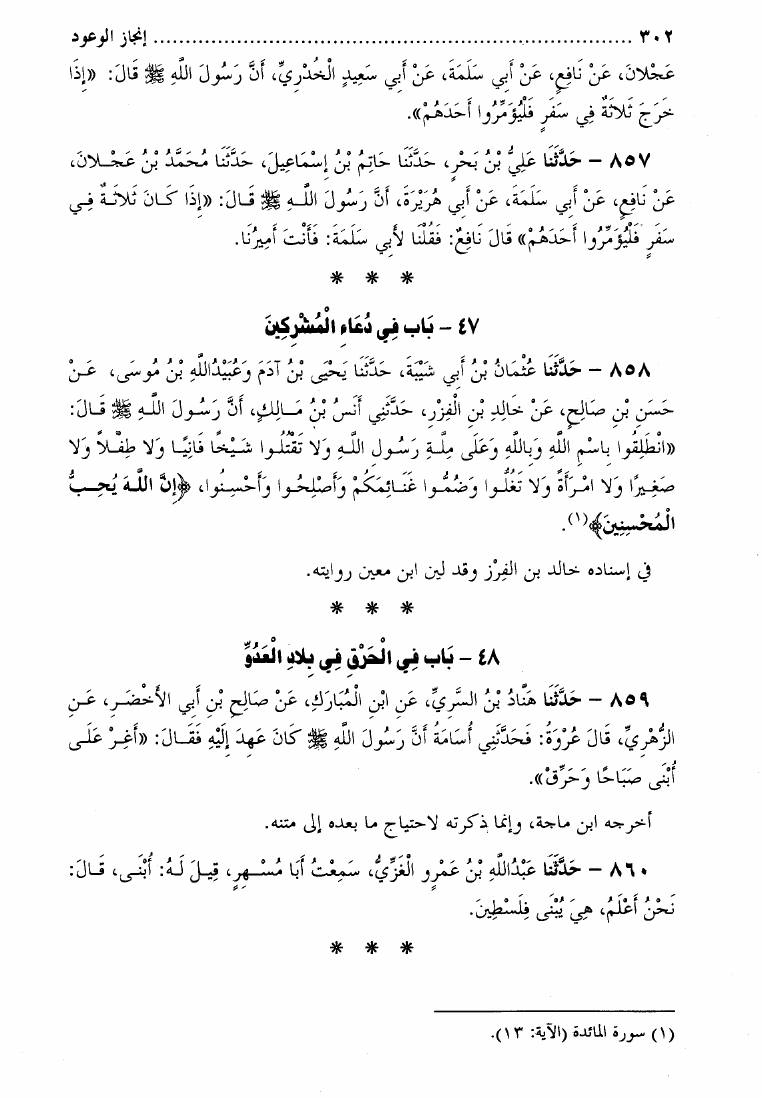 ٣٠٢ ................................................ إنجاز الوعود
عَجْلانَ، عَنْ نَافِعٍ، عَنْ أَبي سَلَمَةَ، عَنْ أَبي سَعِيدٍ الْخُدْرِيِّ، أَنَّ رَسُولَ اللهِ ﷺ قَالَ: «إِذَا
خَرَجَ ثَلاثَةٌ فِي سَفَرٍ فَلْيُؤَمِّرُوا أَحَدَهُمْ».
٨٥٧ – حَدَّثَنَا عَلِيُّ بْنُ بَحْرٍ، حَدَّثَنَا حَاتِمُ بْنُ إِسْمَاعِيلَ، حَدَّثَنَا مُحَمَّدُ بْنُ عَجْـلانَ،
عَنْ نَافِعٍ، عَنْ أَبي سَلَمَةَ، عَنْ أَبي هُرَيْرَةَ، أَنَّ رَسُولَ اللَّـهِ ﷺ قَـالَ: «إِذَا كَـانَ ثَلاثَـةٌ فِـي
سَفَرٍ فَلْيُؤَمِّرُوا أَحَدَهُمْ» قَالَ نَافِعٌ: فَقُلْنَا لأَبي سَلَمَةَ: فَأَنْتَ أَمِيرُنَا.
* * *
٤٧ – بَاب فِي دُعَاءِ الْمُشْرِكِينَ
٨٥٨ – حَدَّثَنَا عُثْمَانُ بْنُ أَبي شَيْبَةَ، حَدَّثَنَا يَحْيَى بْنُ آدَمَ وَعُبَيْدُاللهِ بْنُ مُوسَى، عَـنْ
حَسَنِ بْنِ صَالِحٍ، عَنْ خَالِدِ بْنِ الْفِزْرِ، حَدَّثَنِي أَنَسُ بْنُ مَـالِكٍ، أَنَّ رَسُـولَ اللَّـهِ ﷺ قَـالَ:
«انْطَلِقُوا بِاسْمِ اللهِ وَبِاللهِ وَعَلَى مِلَّـةِ رَسُـولِ اللَّـهِ وَلا تَقْتُلُـوا شَـيْخًا فَانِيًـا وَلا طِفْـلاً وَلا
صَغِيرًا وَلا امْـرَأَةً وَلا تَغُلُّـوا وَضُمُّـوا غَنَـائِمَكُمْ وَأَصْلِحُـوا وَأَحْسِـنُوا، ﴿إِنَّ اللَّـهَ يُحِـبُّ
الْمُحْسِنِينَ﴾(١).
في إسناده خالد بن الفِرْز وقد لين ابن معين روايته.
* * *
٤٨ – بَاب فِي الْحَرْقِ فِي بِلادِ الْعَدُوِّ
٨٥٩ – حَدَّثَنَا هَنَّادُ بْنُ السَّرِيِّ، عَنِ ابْنِ الْمُبَارَكِ، عَنْ صَالِحِ بْنِ أَبي الأَخْضَـرِ، عَـنِ
الزُّهْرِيِّ، قَالَ عُرْوَةُ: فَحَدَّثَنِي أُسَامَةُ أَنَّ رَسُولَ اللهِ ﷺ كَانَ عَهِدَ إِلَيْهِ فَقَـالَ: «أَغِـرْ عَلَـى
أُبْنَى صَبَاحًا وَحَرِّقْ».
أخرجه ابن ماجة، وإنما ذكرته لاحتياج ما بعده إلى متنه.
٨٦٠ – حَدَّثَنَا عَبْدُاللهِ بْنُ عَمْرٍو الْغَزِّيُّ، سَمِعْتُ أَبَا مُسْـهِرٍ، قِيـلَ لَـهُ: أُبْنَـى، قَـالَ:
نَحْنُ أَعْلَمُ، هِيَ يُبْنَى فِلَسْطِينَ.
* * *
(١) سورة المائدة (الآية: ١٣).